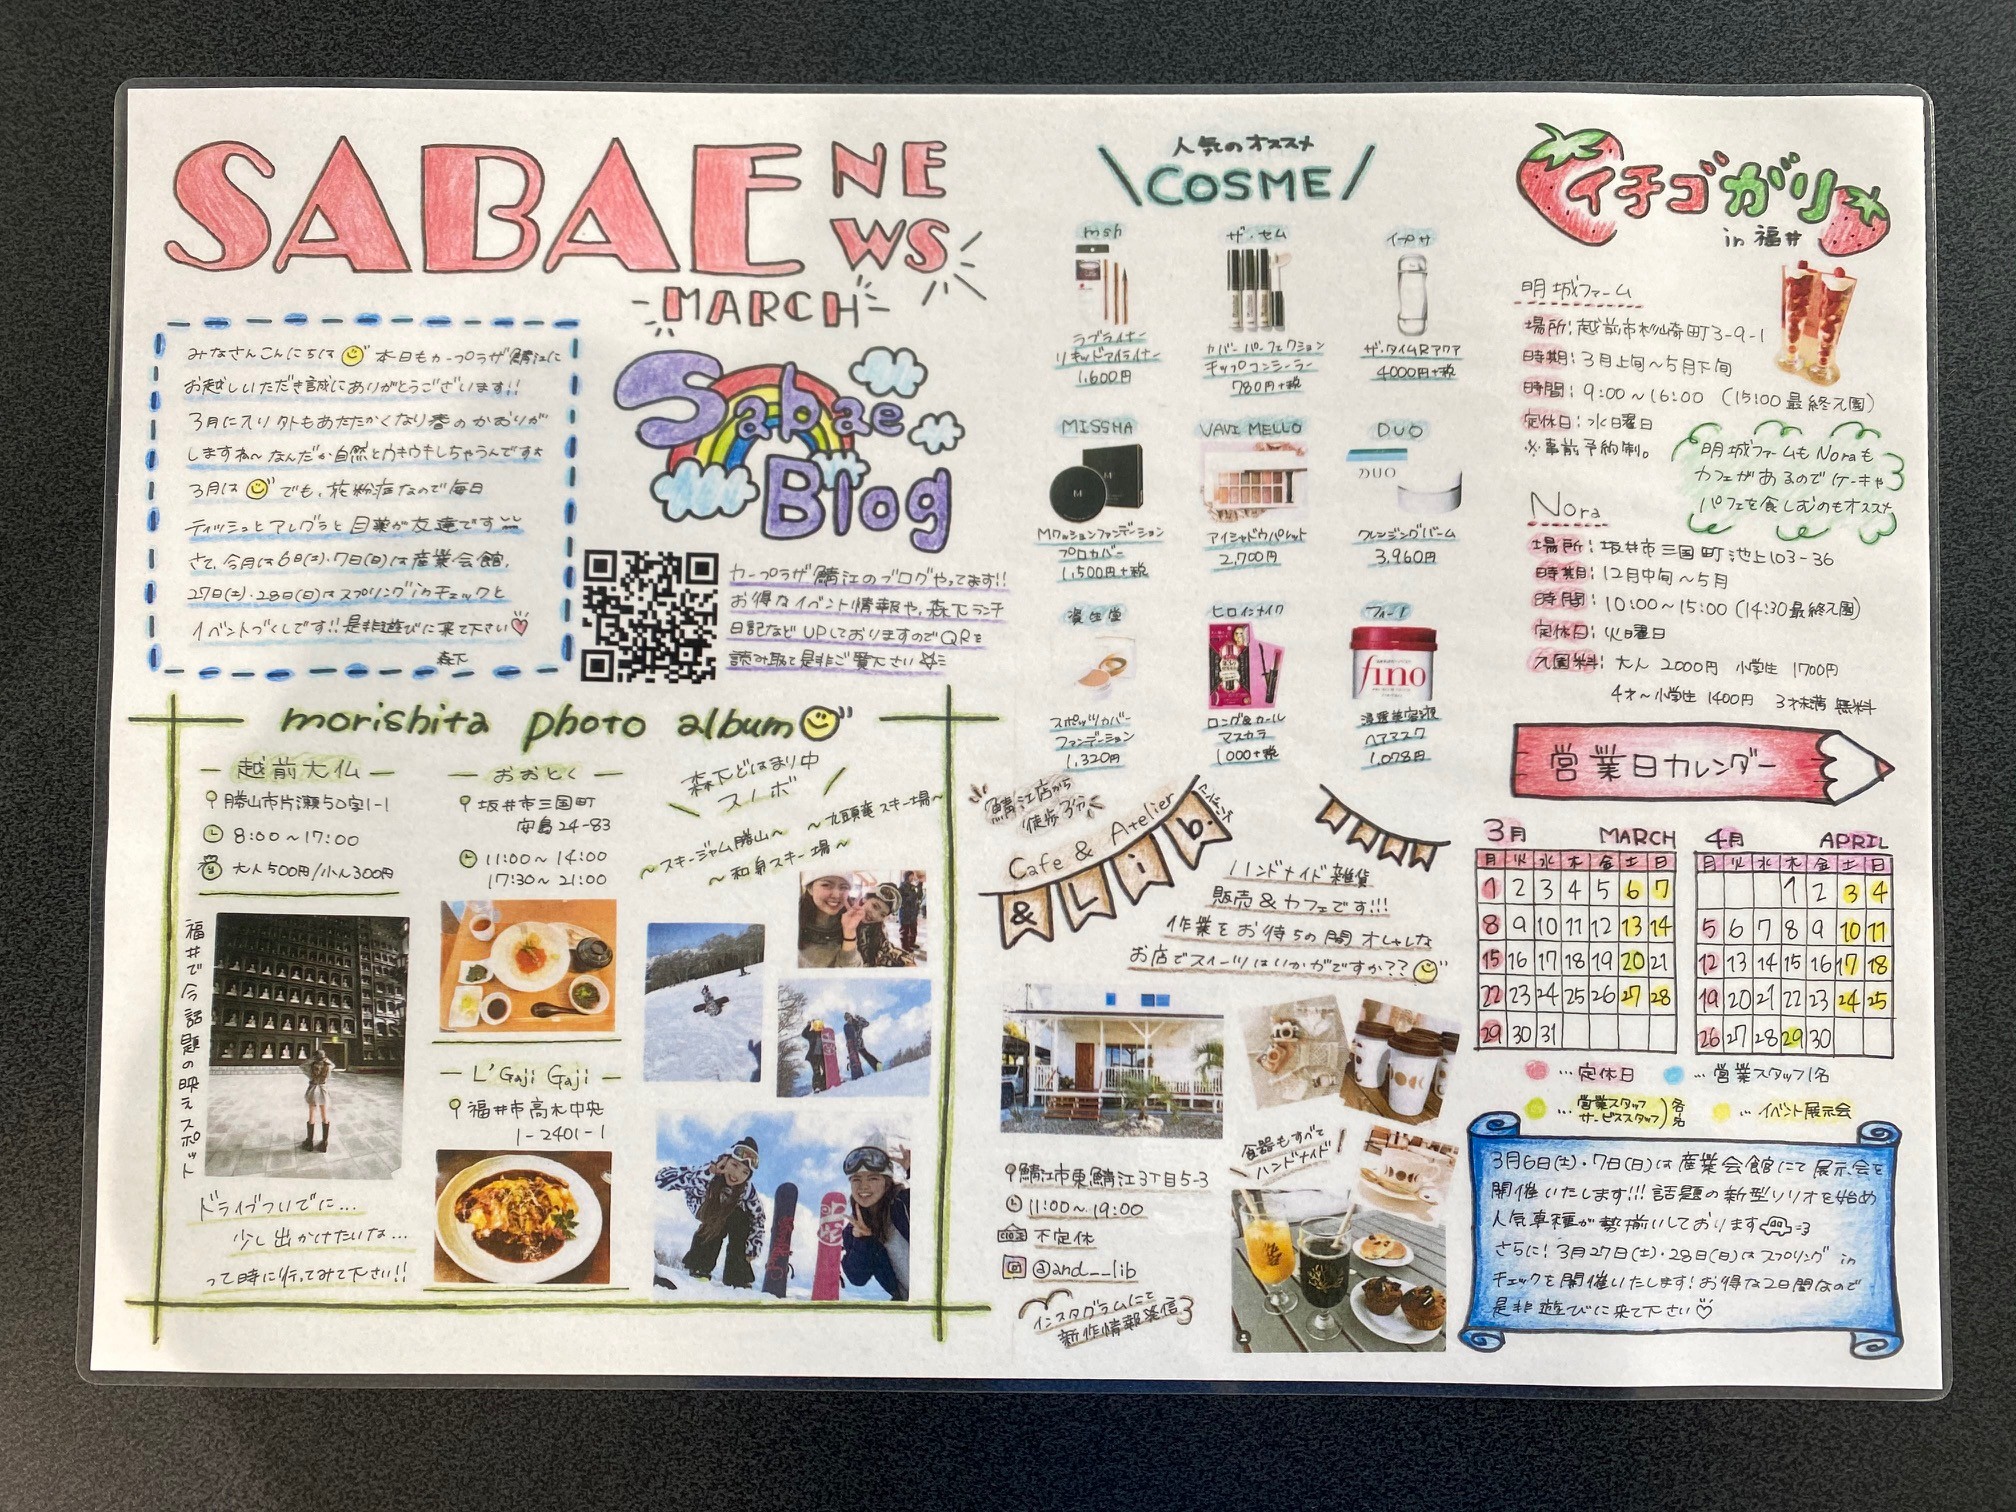 SABAE NEWS
MARCH
みなさんこんにちは 本日もカープラザ鯖江に
お越しいただき誠にありがとうございます!!
3月に入り外もあたたかくなり春のかおりが
しますね〜なんだか自然とウキウキしちゃうんです
3月は でも、花粉症なので毎日
ティッシュとアレグラと目薬が友達です
さて、今月は6日(土)・7日(日)は産業会館,
27日(土)・28日(日)はスプリングinチェックと
イベントづくしです!!是非遊びに来て下さい♡
森下
Sabae
Blog
カープラザ鯖江のブログやってます!!
お得なイベント情報や、森下ランチ
日記などUPしておりますのでQRを
読み取って是非ご覧下さい
morishita photo album
越前大仏
勝山市片瀬50字1-1
8:00〜17:00
大人500円/小人300円
福井で今話題の映えスポット
ドライブついでに...
少し出かけたいな...
って時に行ってみて下さい!!
おおとく
坂井市三国町
安島24-83
11:00〜14:00
17:30〜21:00
L'Gaji Gaji
福井市高木中央
1-2401-1
森下どはまり中
スノボ
〜スキージャム勝山〜
〜九頭竜スキー場〜
〜和泉スキー場〜
人気のオススメ
COSME
msh
ラブライナー
リキッドアイライナー
1,600円
ザ・セム
カバーパーフェクション
チップコンシーラー
780円+税
イプサ
ザ・タイムRアクア
4000円+税
MISSHA
Mクッションファンデーション
プロカバー
1,500円+税
VAVI MELLO
アイシャドウパレット
2,700円
DUO
DUO
クレンジングバーム
3,960円
資生堂
スポッツカバー
ファンデーション
1,320円
ヒロインメイク
ロング&カール
マスカラ
1000+税
フィーノ
fino
浸透美容液
ヘアマスク
1,078円
鯖江店から
徒歩3分
Cafe & Atelier
&Lib.
ハンドメイド雑貨
販売&カフェです!!!
作業をお待ちの間オシャレな
お店でスイーツはいかがですか??
食器もすべて
ハンドメイド
鯖江市東鯖江3丁目5-3
11:00〜19:00
不定休
@and__lib
インスタグラムにて
新作情報発信
イチゴガリ
in 福井
明城ファーム
場所:越前市杉崎町3-9-1
時期:3月上旬〜5月下旬
時間:9:00〜16:00 (15:00最終入園)
定休日:水曜日
※事前予約制。
明城ファームもNoraも
カフェがあるのでケーキや
パフェを食しむのもオススメ
Nora
場所:坂井市三国町池上103-36
時期:12月中旬〜5月
時間:10:00〜15:00 (14:30最終入園)
定休日:火曜日
入園料:大人 2000円 小学生 1700円
4才〜小学生 1400円 3才未満 無料
営業日カレンダー
3月 MARCH
月 火 水 木 金 土 日
1 2 3 4 5 6 7
8 9 10 11 12 13 14
15 16 17 18 19 20 21
22 23 24 25 26 27 28
29 30 31
4月 APRIL
月 火 水 木 金 土 日
1 2 3 4
5 6 7 8 9 10 11
12 13 14 15 16 17 18
19 20 21 22 23 24 25
26 27 28 29 30
…定休日 …営業スタッフ1名
…営業スタッフ1名 サービススタッフ1名 …イベント展示会
3月6日(土)・7日(日)は産業会館にて展示会を
開催いたします!!!話題の新型ソリオを始め
人気車種が勢揃いしております
さらに!3月27日(土)・28日(日)はスプリング in
チェックを開催いたします!お得な2日間なので
是非遊びに来て下さい♡